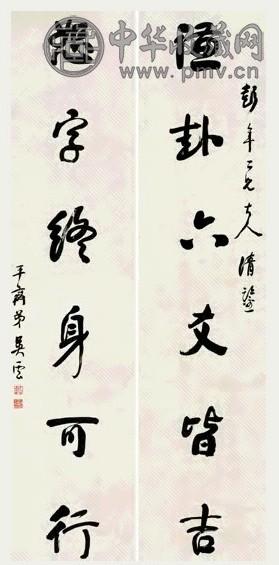 中华收藏网
www.pmv.cn
彭年二兄大人清鑒
謙卦六爻皆吉
恕字終身可行
平齋弟吳雲